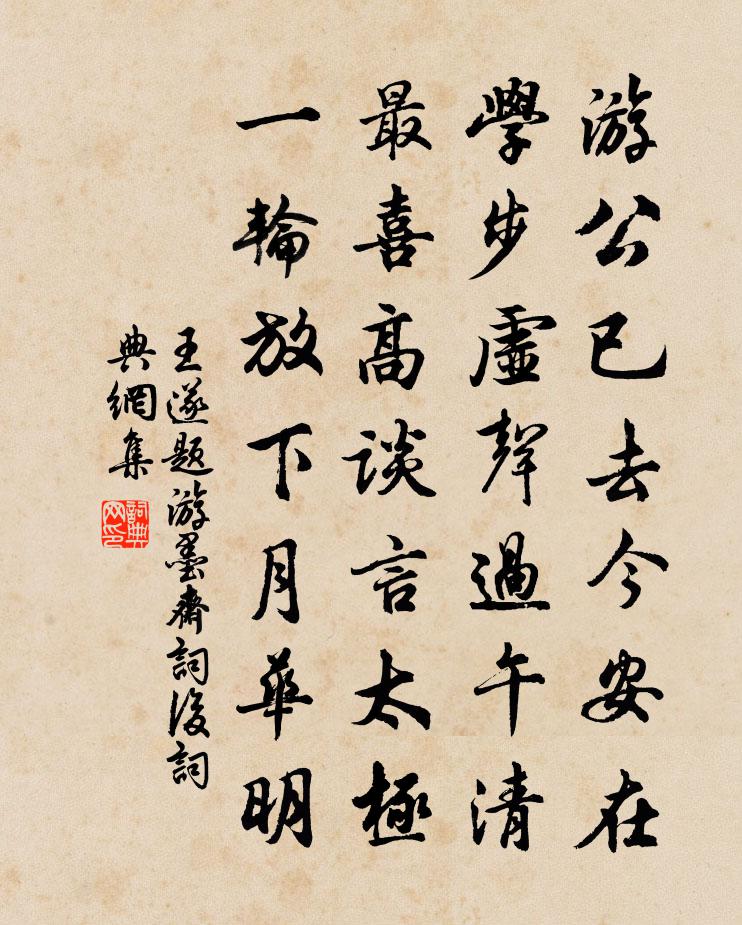 游公已去今安在
學步虛聲過午清
最喜高談言太極
一輪放下月華明
王遂題游墨齋詞後詞
典網集
詞典
网印